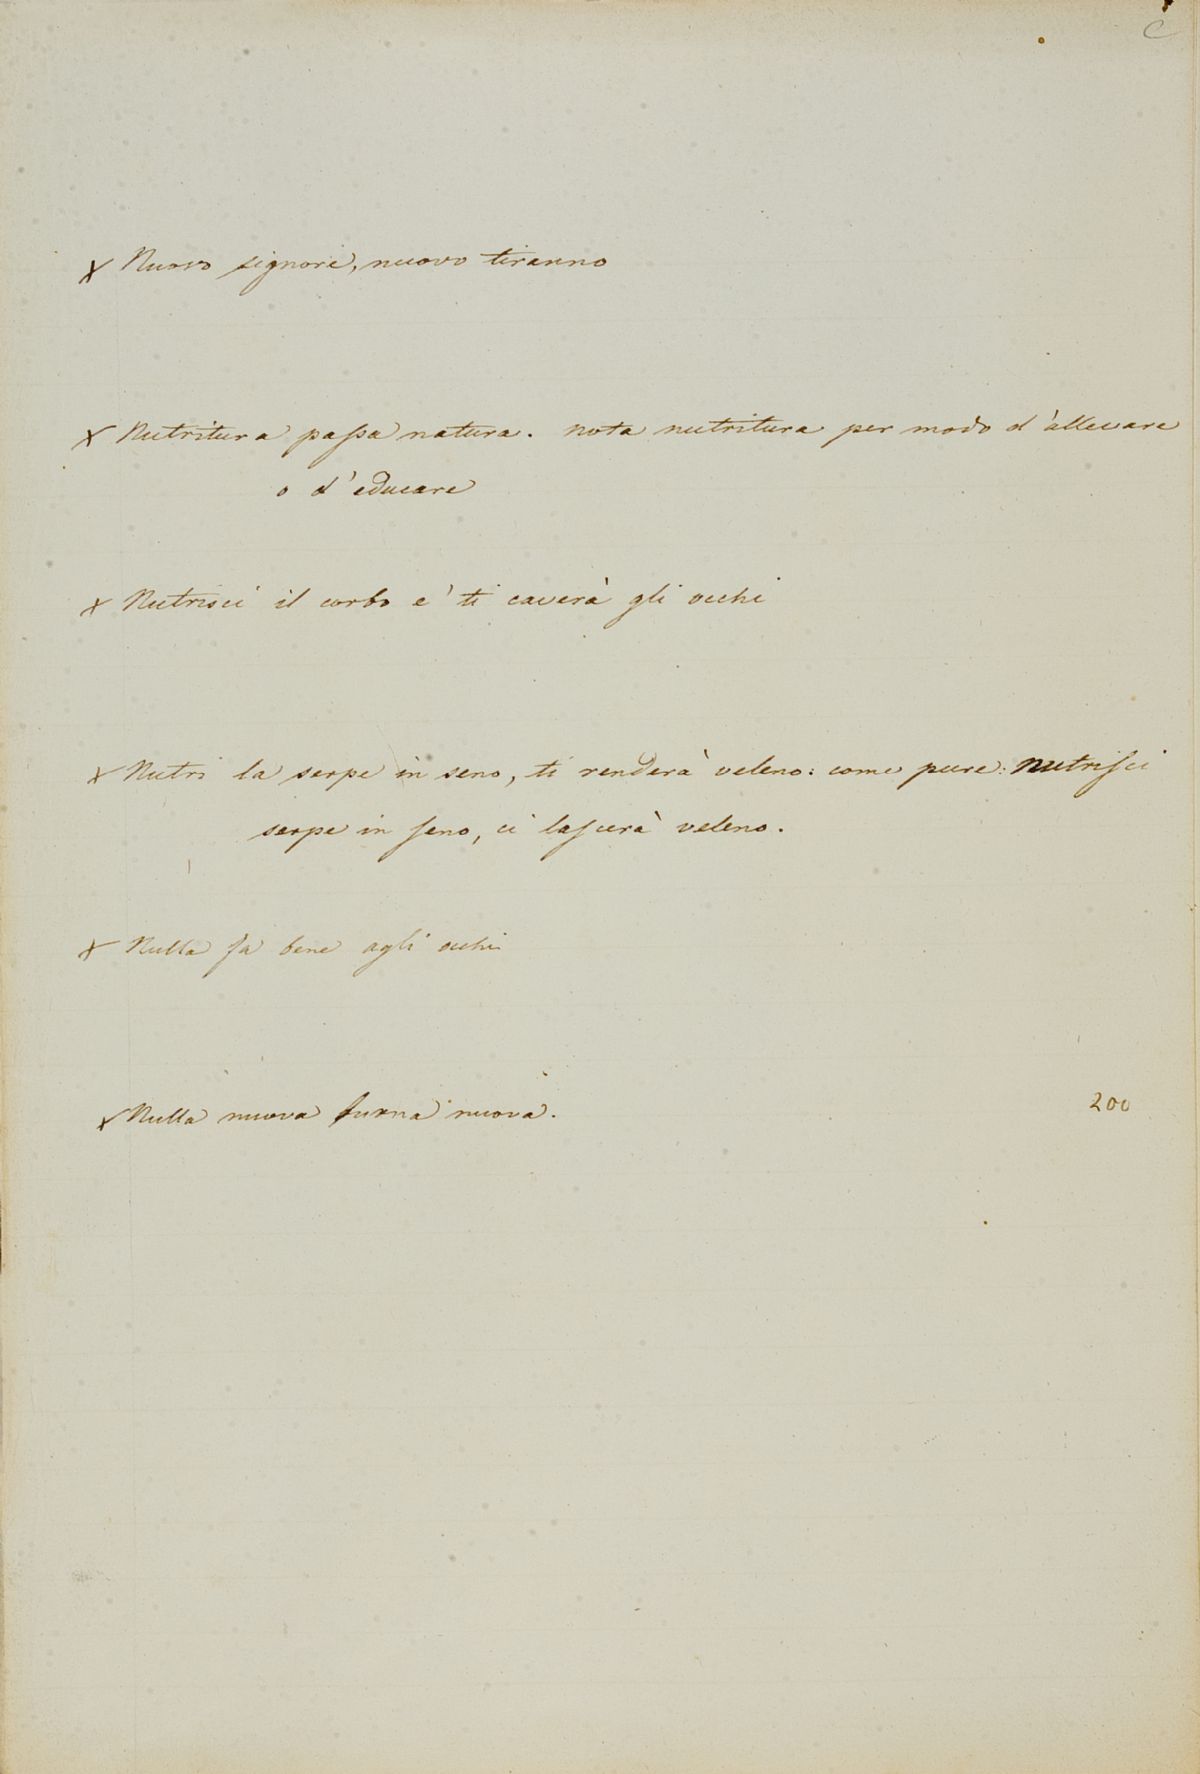 C
x Nuovo signore, nuovo tiranno
x Nutritura paſsa natura. nota nutritura per modo d'allevare
o d'educare
x Nutrisci il corbo e' ti caverà gli occhi
x Nutri la serpe in seno, ti renderà veleno: come pure: nutriſci
serpe in ſeno, ci laſcerà veleno.
x Nulla fa bene agli occhi
x Nulla nuova buona nuova. 200